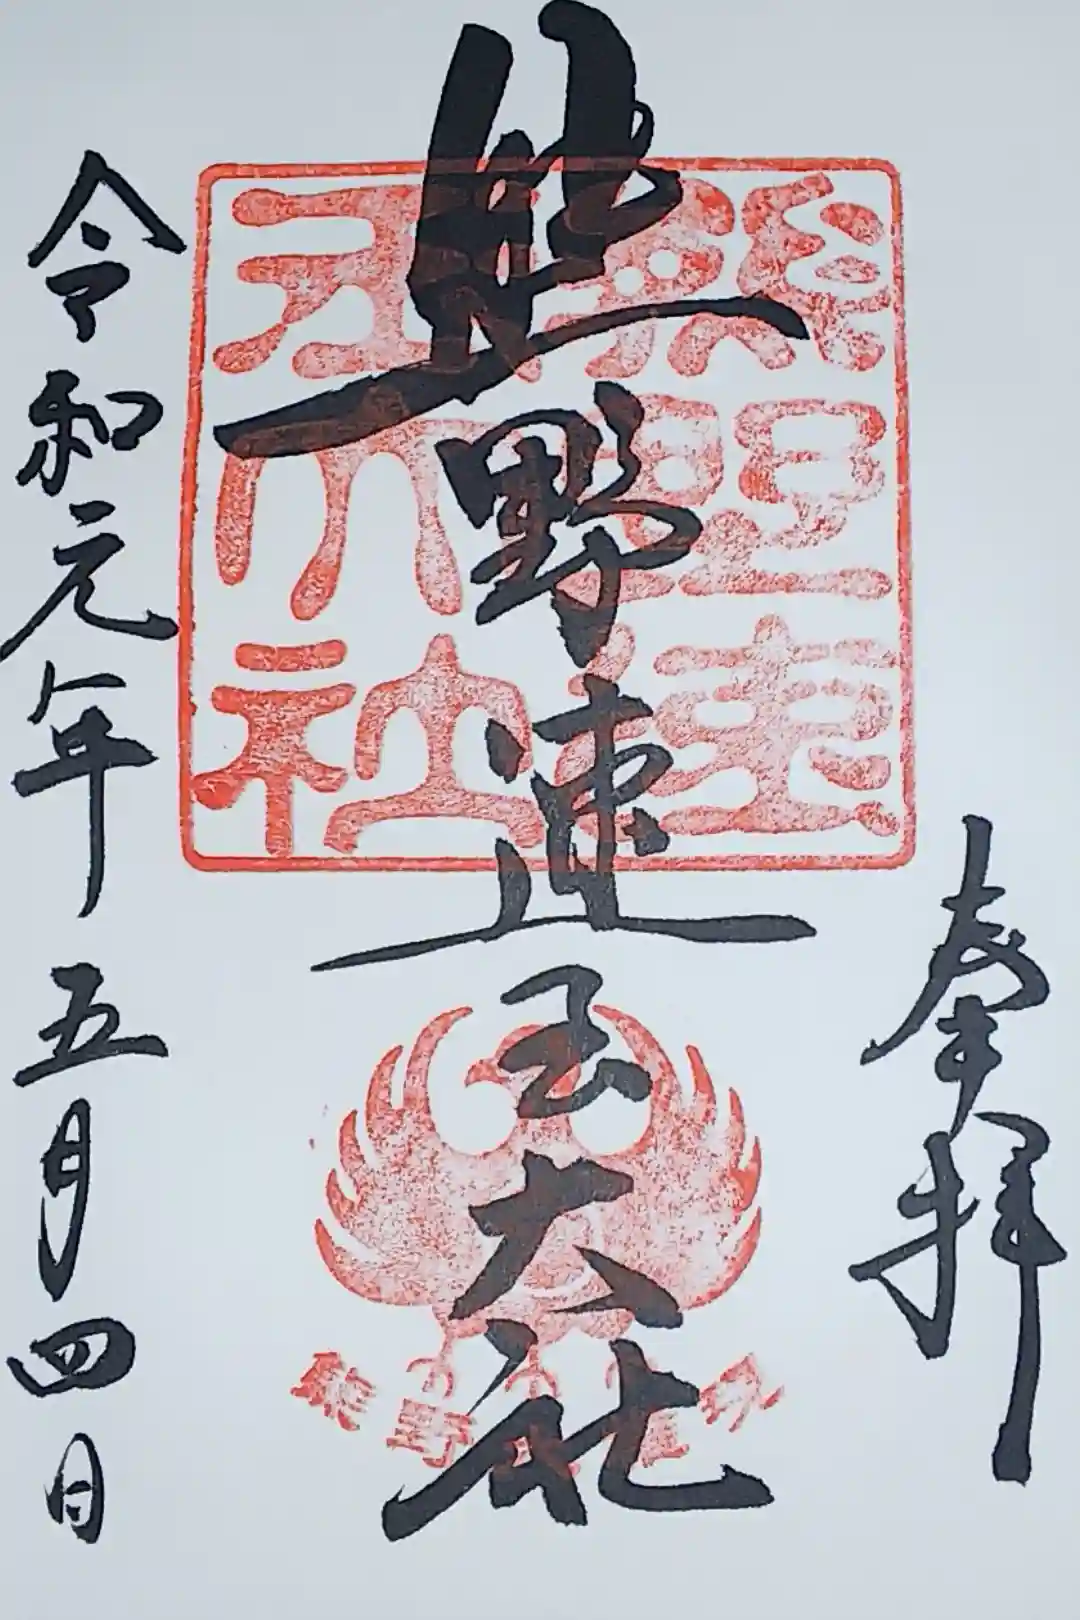 奉拝
熊野速玉大社
令和元年五月四日
熊野速玉大社
熊野